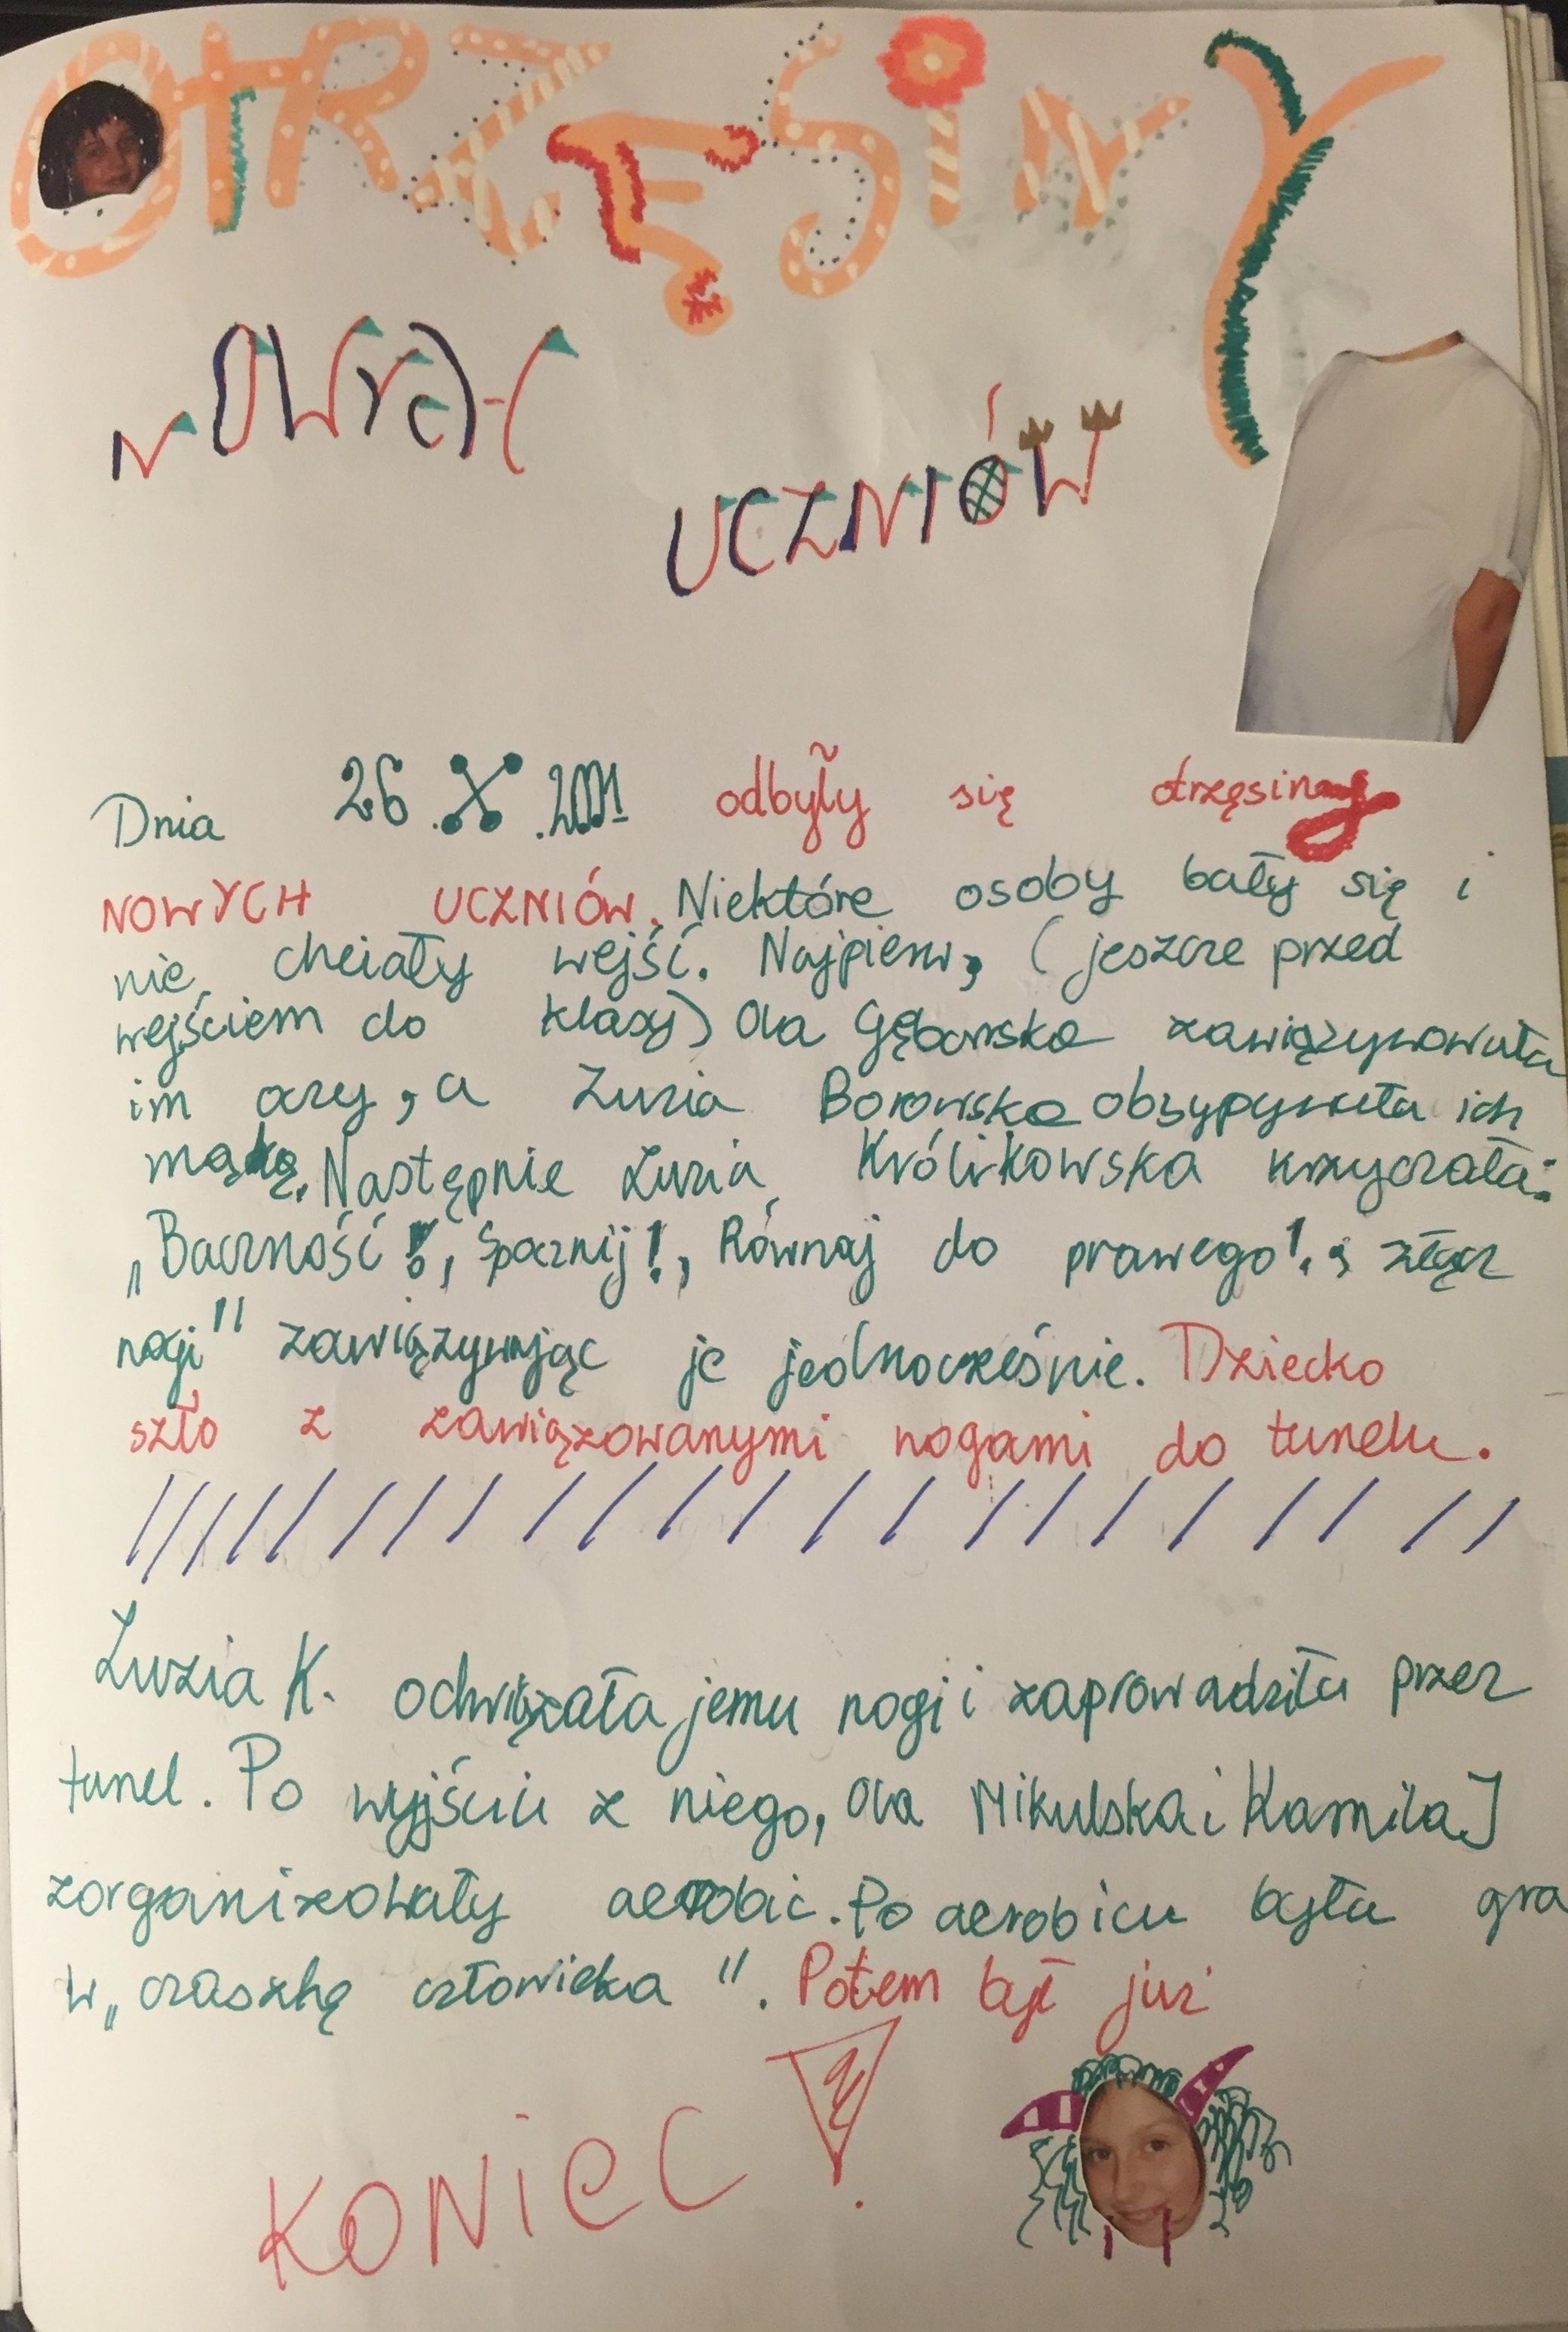 OTRZĘSINY
NOWYCH
UCZNIÓW
Dnia 26.X.2001 odbyły się otrzęsiny
NOWYCH UCZNIÓW. Niektóre osoby bały się i
nie chciały wejść. Najpierw, (jeszcze przed
wejściem do klasy) Ola Gębarska zawiązywowała
im oczy, a Zuzia Borowska obsypywała ich
mąką. Następnie Luzia Królikowska krzyczała:
„Baczność!, Spocznij!, Równaj do prawego!, złącz
nogi" zawiązywując je jednocześnie. Dziecko
szło z zawiązowanymi nogami do tunelu.
Luzia K. odwiązała jemu nogi i zaprowadziła przez
tunel. Po wyjściu z niego, Ola Mikulska i Kamila J
zorganizowały aerobic. Po aerobicu była gra
w „czaszkę człowieka". Potem był już
KONIEC!